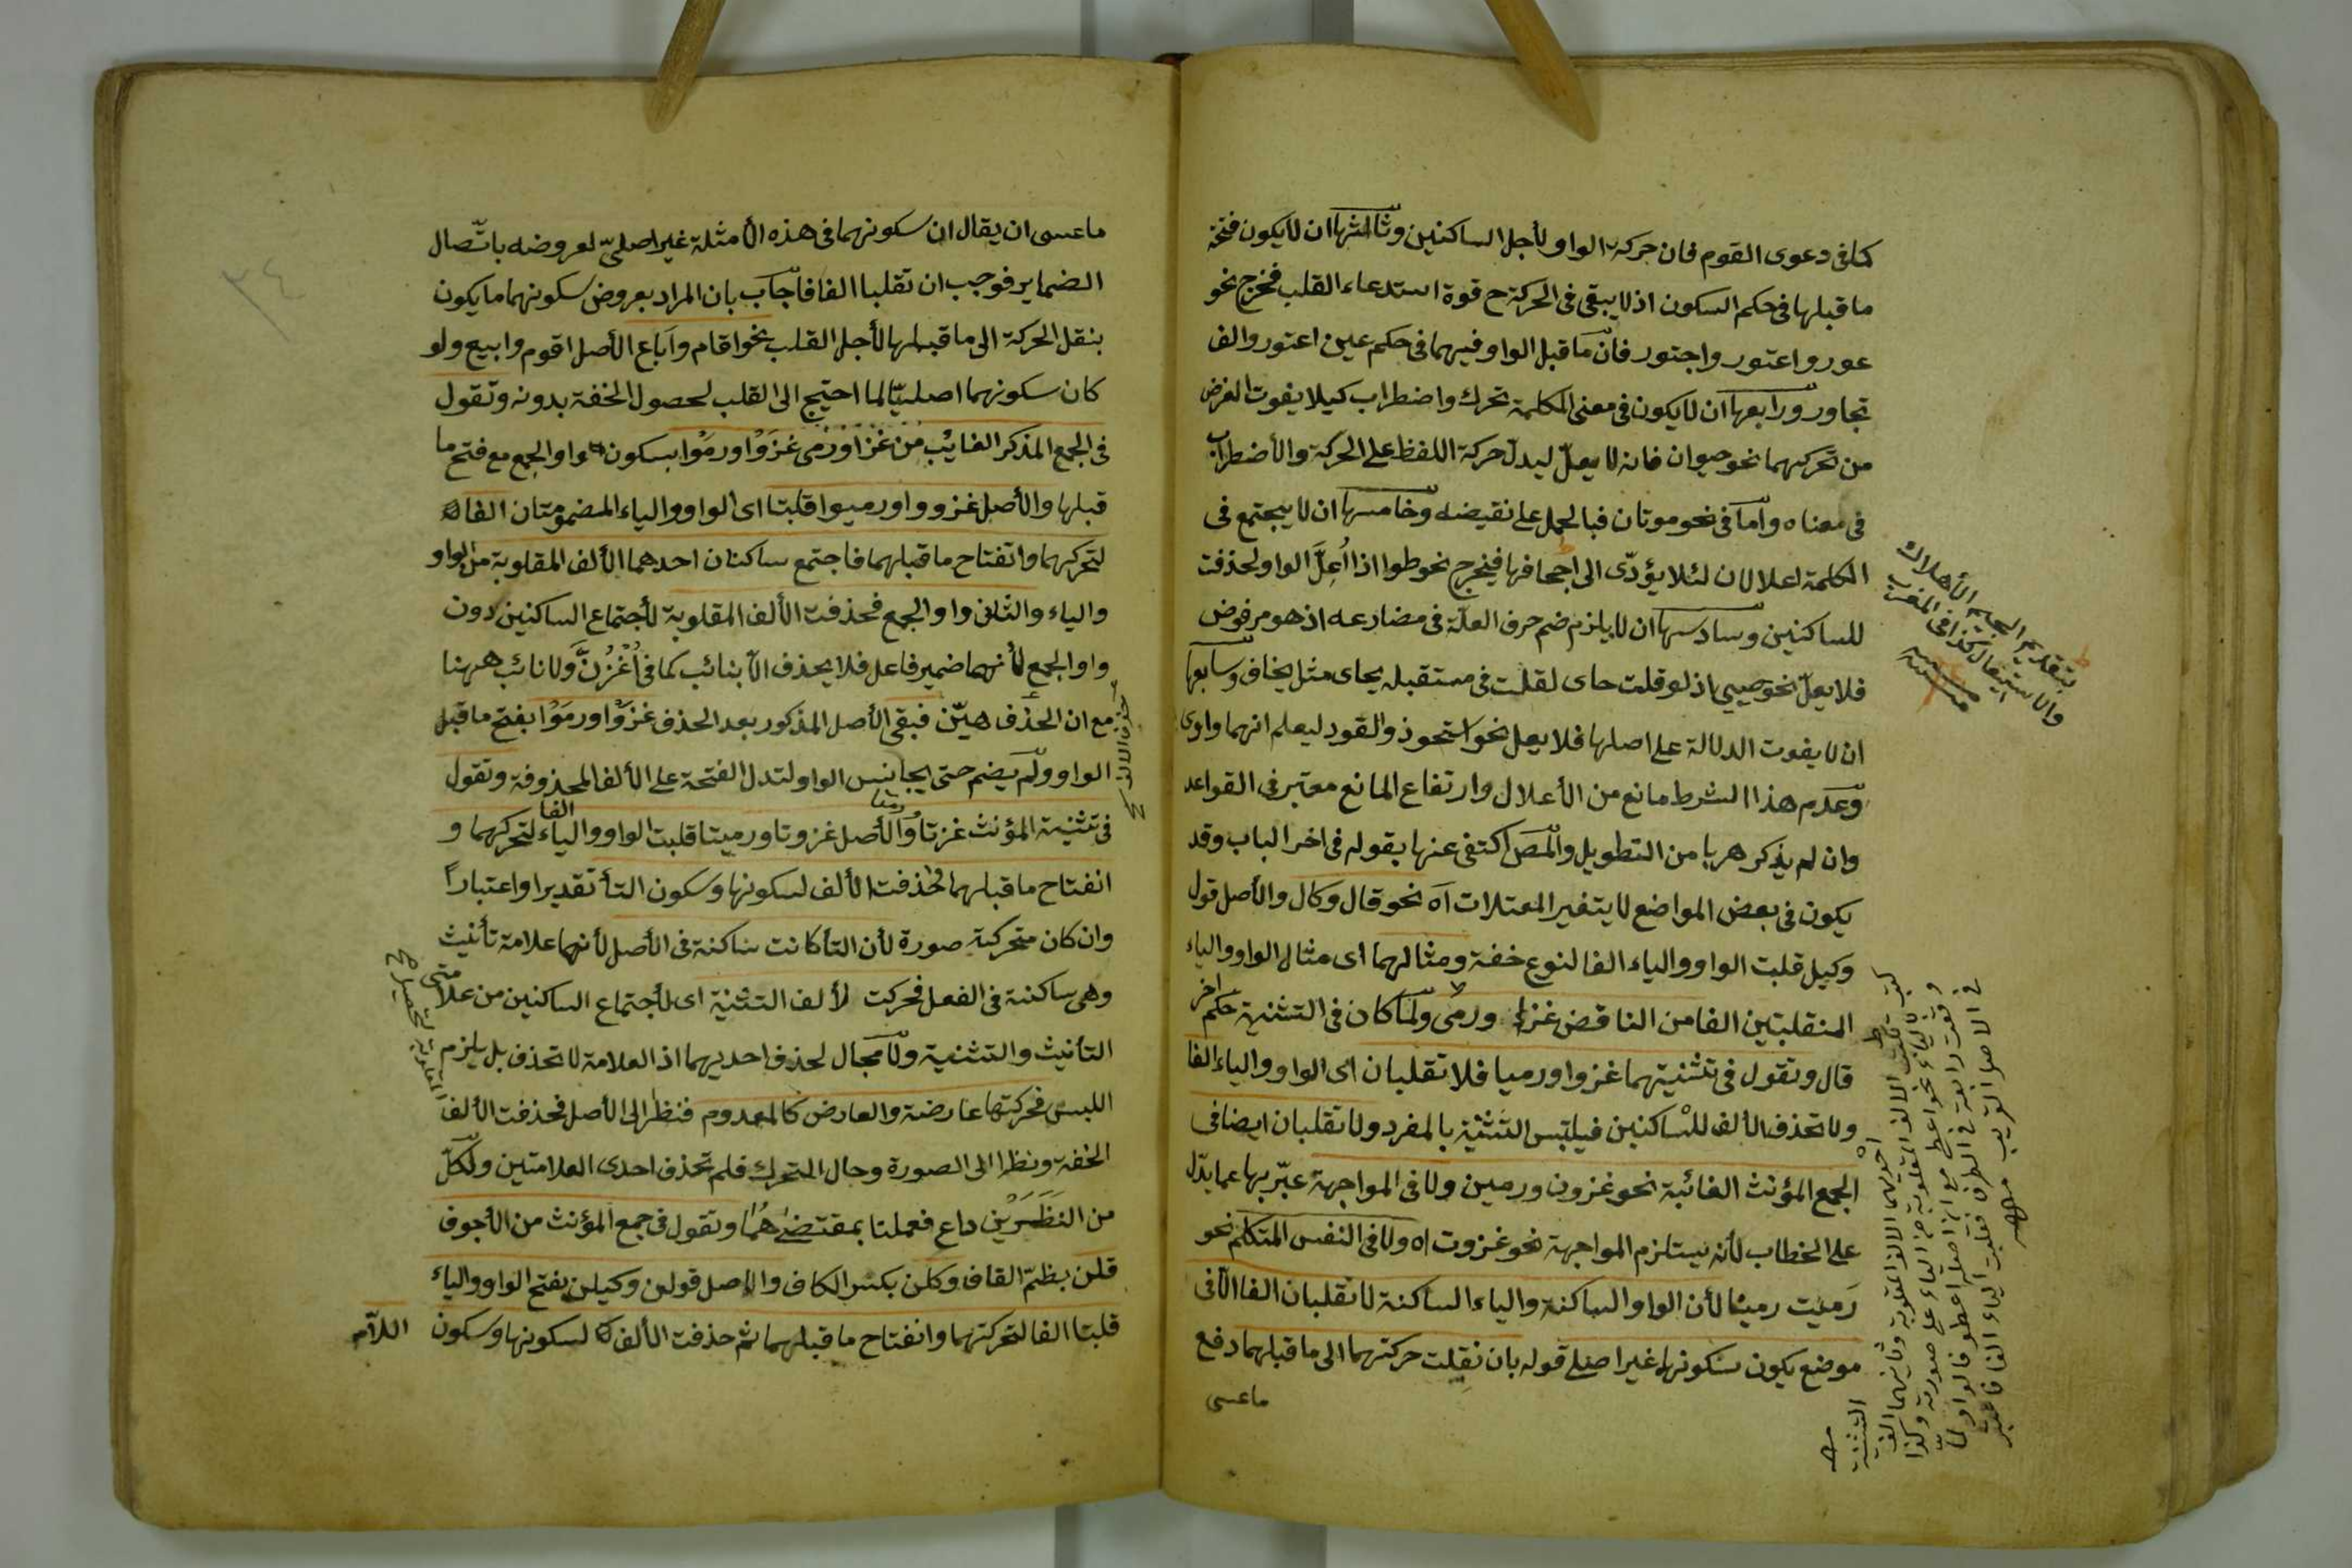 كما فى دعوى القوم فان حركة الواو لأجل الساكنين وثالثها ان لا يكون فتحة
ما قبلها فى حكم السكون اذ لا يبقى فى الحركة ح قوة استدعاء القلب فخرج نحو
عور واعتور واجتور فان ما قبل الواو فيهما فى حكم عين اعتور والف
تجاور ورابعها ان لا يكون فى معنى الكلمة تحرك واضطراب كيلا يفوت الغرض
من تحركهما نحو حيوان فانه لا يعلّ ليدل حركة اللفظ على الحركة والأضطراب
فى معناه واما فى نحو موتان فبالحمل على نقيضه وخامسها ان لا يجتمع فى
الكلمة اعلالان لئلا يؤدّى الى اجحافها فيخرج نحو طوا اذا اُعِلَّ الواو لحذفت
للساكنين وسادسها ان لا يلزم ضم حرف العلّة فى مضارعه اذ هو مرفوض
فلا يعلّ نحو حيى اذ لو قلت حاى لقلت فى مستقبله يحاى مثل يخاف وسابعها
ان لا يفوت الدلالة على اصلها فلا يعل نحو استحوذ والقود ليعلم انهما واوى
وعدم هذا الشرط مانع من الأعلال وارتفاع المانع معتبر فى القواعد
وان لم يذكر هربا من التطويل والمص اكتفى عنها بقوله فى اخر الباب وقد
يكون فى بعض المواضع لا يتغير المعتلات اه نحو قال وكال والأصل قول
وكيل قلبت الواو والياء الفا لنوع خفة ومثالهما اى مثال الواو والياء
المنقلبتين الفا من الناقص غزا ورمى ولما كان فى التثنية حكم اخر
قال وتقول فى تثنيتهما غزوا ورميا فلا تقلبان اى الواو والياء الفا
ولا تحذف الألف للساكنين فيلتبس التثنية بالمفرد ولا تقلبان ايضا فى
الجمع المؤنث الغائبة نحو غزون ورمين ولا فى المواجهة عبّر بها عما يدّل
على الخطاب لأنه يستلزم المواجهة نحو غزوت اه ولا فى النفس المتكلم نحو
رَميت رمينا لأن الواو الساكنة والياء الساكنة لا تقلبان الفا الا فى
موضع يكون سكونها غير اصلى قوله بان نقلت حركتهما الى ما قبلهما دفع
ما عسى
بتقديم الجيم الأهلاك
والاستيصال كذا فى المغرب
احديهما الالف المقلوبة وثانيهما الف
التثنية
ما عسى ان يقال ان سكونهما فى هذه الأمثلة غير اصلىّ لعروضه باتّصال
الضماير فوجب ان تقلبا الفا فاجاب بان المراد بعروض سكونهما ما يكون
بنقل الحركة الى ما قبلها لأجل القلب نحو اقام واباع الأصل اقوم وابيع ولو
كان سكونهما اصليّا لما احتيج الى القلب لحصول الخفة بدونه وتقول
فى الجمع المذكر الغايب من غزا ورمى غزَوْا ورمَوْا بسكون واو الجمع مع فتح ما
قبلها والأصل غزووا ورميوا قلبتا اى الواو والياء المضمومتان الفا
لتحركهما وانفتاح ما قبلهما فاجتمع ساكنان احدهما الألف المقلوبة من الواو
والياء والثانى واو الجمع فحذفت الألف المقلوبة لأجتماع الساكنين دون
واو الجمع لأنهما ضمير فاعل فلا يحذف الا بنائب كما فى اُغْزُنَّ ولا نائب ههنا
مع ان الحذف هيّن فبقى الأصل المذكور بعد الحذف غزَوْا ورمَوْا بفتح ما قبل
الواو ولم يضم حتى يجانس الواو لتدل الفتحة على الألف المحذوفة وتقول
فى تثنية المؤنث غزتا ورمتا والأصل غزوتا ورميتا قلبت الواو والياء الفا لتحركهما و
انفتاح ما قبلهما فحذفت الألف لسكونها وسكون التأ تقديرا واعتباراً
وان كان متحركة صورة لأن التأ كانت ساكنة فى الأصل لأنهما علامة تأنيث
وهى ساكنة فى الفعل فحركت لألف التثنية اى لأجتماع الساكنين من علامتى
التأنيث والتثنية ولا مجال لحذف احديهما اذ العلامة لا تحذف بل يلزم
اللبس فحركتها عارضة والعارض كالمعدوم فنظرا الى الأصل فحذفت الألف
الخفة ونظرا الى الصورة وحال المتحرك فلم تحذف احدى العلامتين ولكلّ
من النظَرَيْن داع فعملنا بمقتضاهُما وتقول فى جمع المؤنث من الأجوف
قلن بظمّ القاف وكلن بكسر الكاف والاصل قولن وكيلن بفتح الواو والياء
قلبتا الفا لتحركتهما وانفتاح ما قبلهما ثم حذفت الألف لسكونها وسكون
اللاّم
٣٤